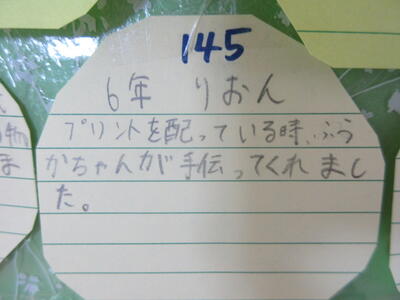 145
6年 りおん
プリントを配っている時、ふう
かちゃんが手伝ってくれまし
た。
物
ま